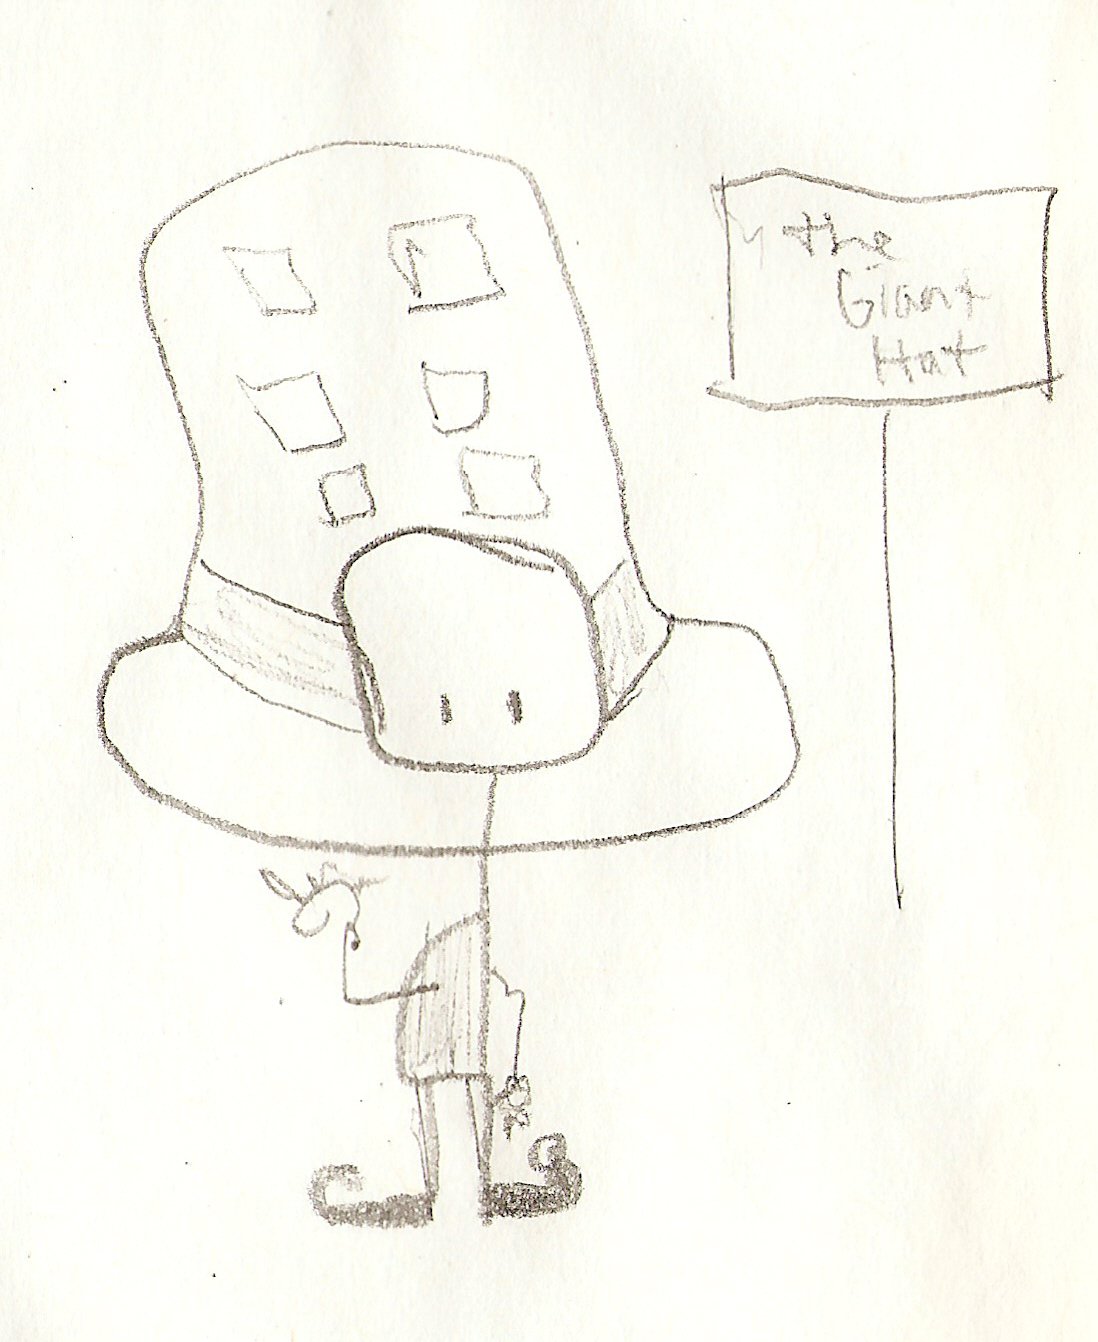 the
Giant
Hat